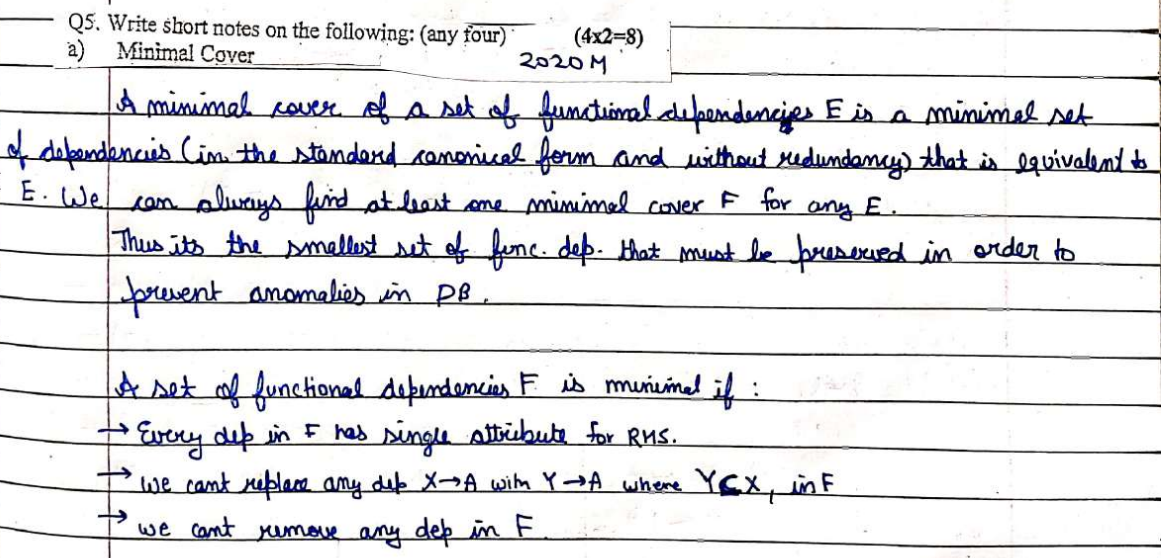 Q5. Write short notes on the following: (any four) (4x2=8)
a) Minimal Cover 2020 M
A minimal cover of a set of functional dependencies E is a minimal set
of dependencies (in the standard canonical form and without redundancy) that is equivalent to
E. We can always find at least one minimal cover F for any E.
Thus its the smallest set of func. dep. that must be preserved in order to
prevent anomalies in DB.
A set of functional dependencies F is minimal if :
→ Every dep in F has single attribute for RHS.
→ we cant replace any dep X→A with Y→A where Y⊂X, in F
→ we cant remove any dep in F.